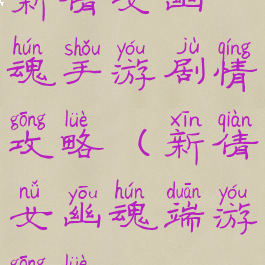 新倩女幽
hún shǒu yóu jù qíng
魂手游剧情
gōng lüè xīn qiàn
攻略（新倩
nǚ yōu hún duān yóu
女幽魂端游
gōng lüè